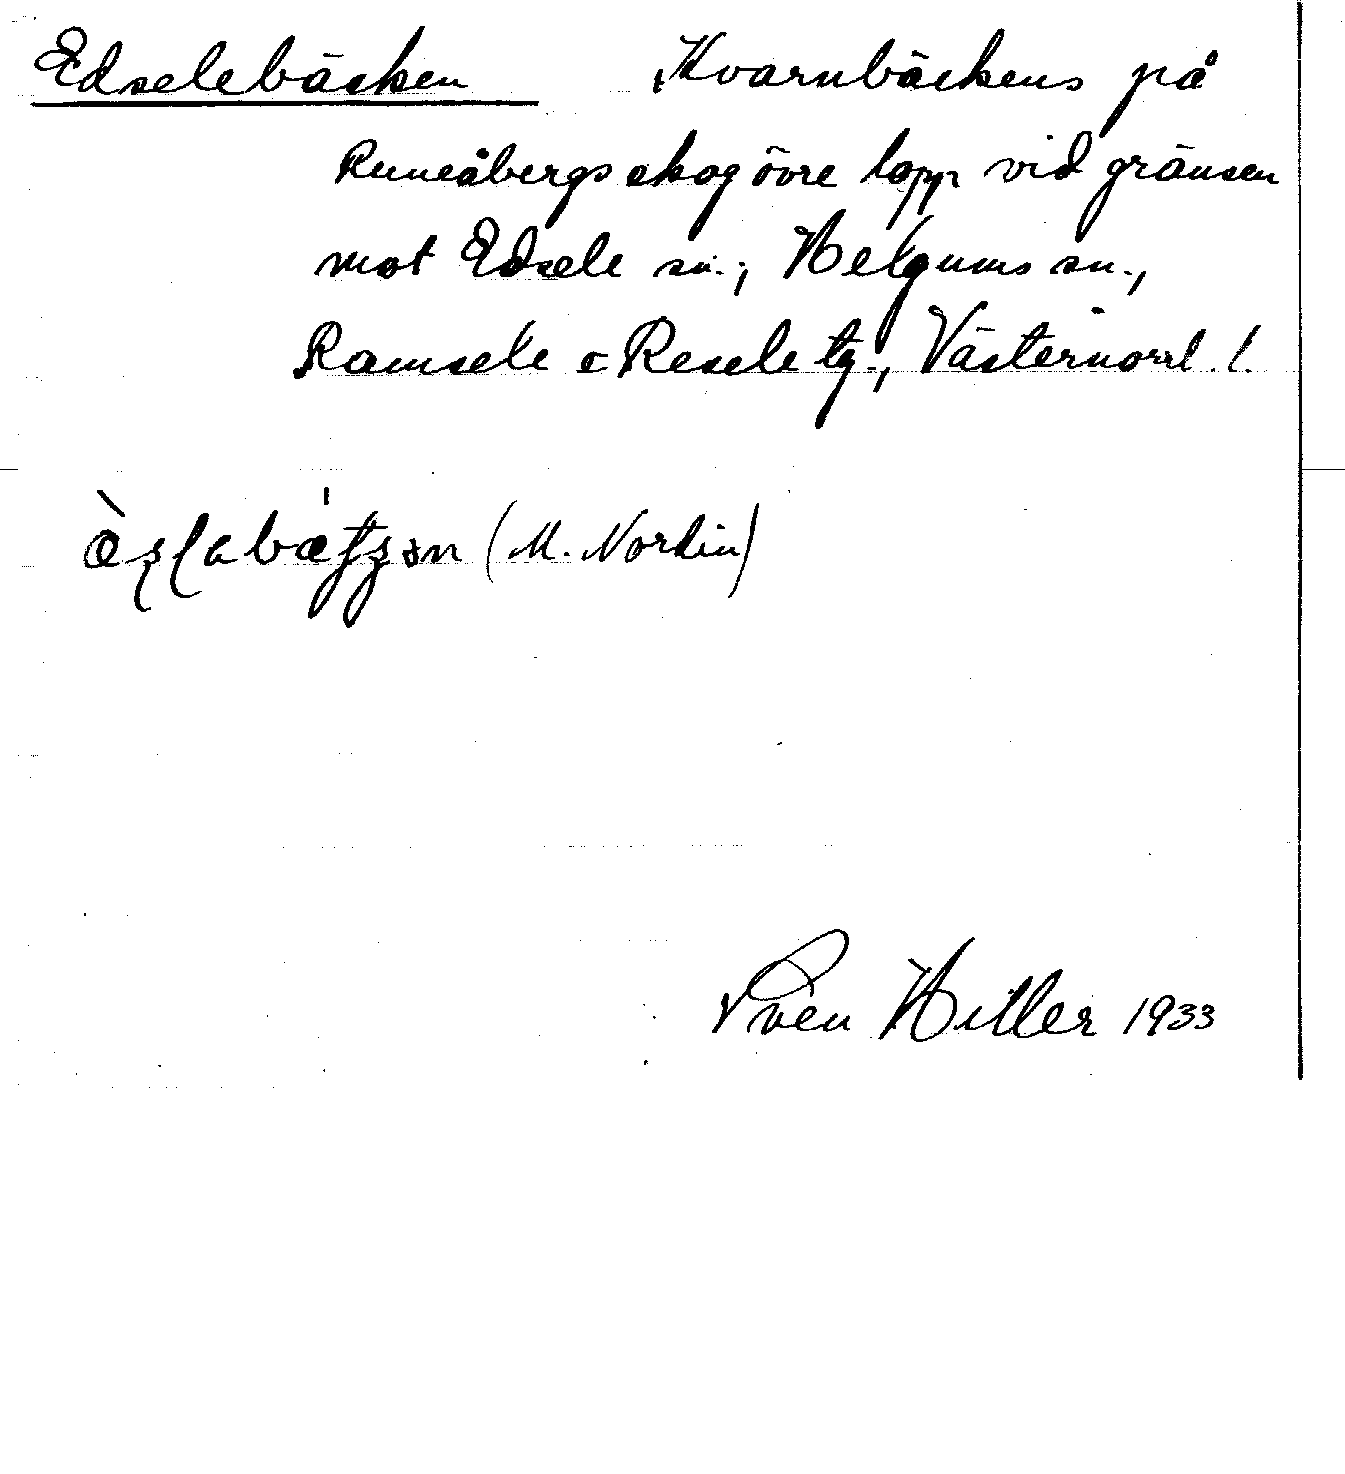 Edselebäcken Kvarnbäckens på
Runeåbergs skog övre lopp vid gränsen
mot Edsele sn., Helgums sn.,
Ramsele o Resele tg., Västernorrl. l.
(M. Nordin)
Sven Hiller 1933